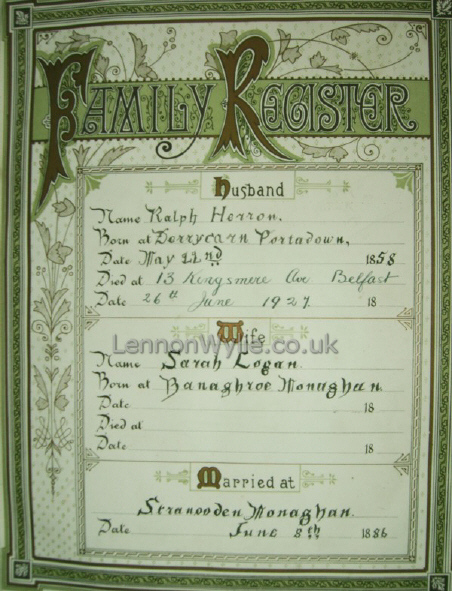 Family Register
Husband
Name Ralph Herron.
Born at Derrycarn Portadown,
Date May 22nd 1858
Died at 13 Kingsmere Av. Belfast
Date 26th June 1927 18
Wife
LennonWylie.co.uk
Name Sarah Logan.
Born at Banaghroe Monaghan
Date 18
Died at
Date 18
Married at
Stranooden Monaghan.
Date June 8th 1886